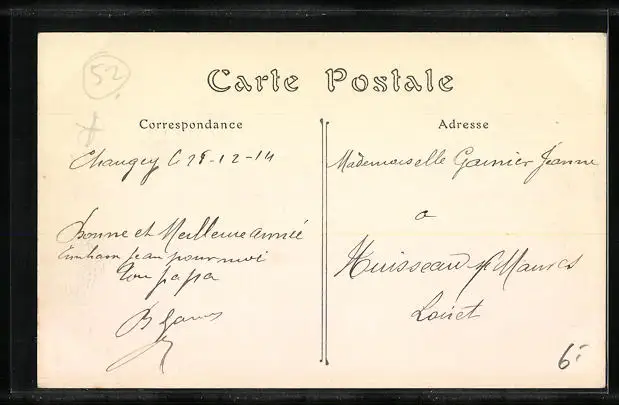 52
Carte Postale
Correspondance
Changey 29-12-14
Bonne et Meilleure année
Jean pour moi
Ton papa
B
Adresse
Mademoiselle Garnier Jeanne
a
Huisseau s/ Mauves
Loiret
6